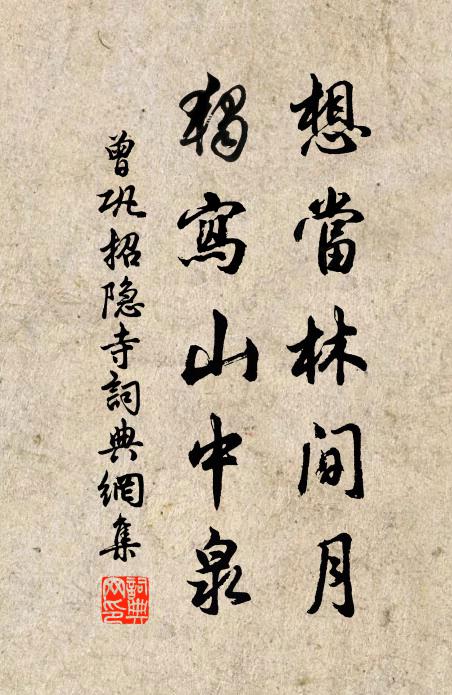 想當林間月
獨寫山中泉
曾巩招隐寺詞典網集
詞典網印